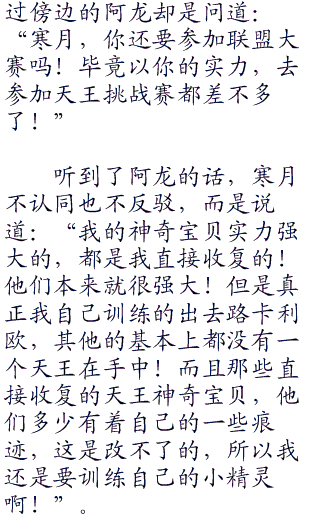 过傍边的阿龙却是问道：
“寒月，你还要参加联盟大
赛吗！毕竟以你的实力，去
参加天王挑战赛都差不多
了！”
听到了阿龙的话，寒月
不认同也不反驳，而是说
道：“我的神奇宝贝实力强
大的，都是我直接收复的！
他们本来就很强大！但是真
正我自己训练的出去路卡利
欧，其他的基本上都没有一
个天王在手中！而且那些直
接收复的天王神奇宝贝，他
们多少有着自己的一些痕
迹，这是改不了的，所以我
还是要训练自己的小精灵
啊！”。